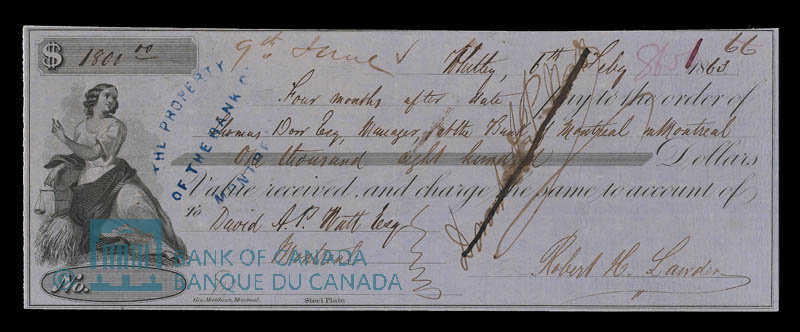 $ 1800 00
9th June
Whitby, 6th Feby 1863
66
Four months after date Pay to the order of
Thomas Dorr Esq, Manager, at the Bank of Montreal in Montreal
One thousand Eight hundred Dollars
Value received, and charge the same to account of
To David A.P. Watt Esq
Montreal
Robert H. Lawder
No.
THE PROPERTY
OF THE BANK O
MONTRE
BANK OF CANADA
BANQUE DU CANADA
Geo. Matthews, Montreal. Steel Plate